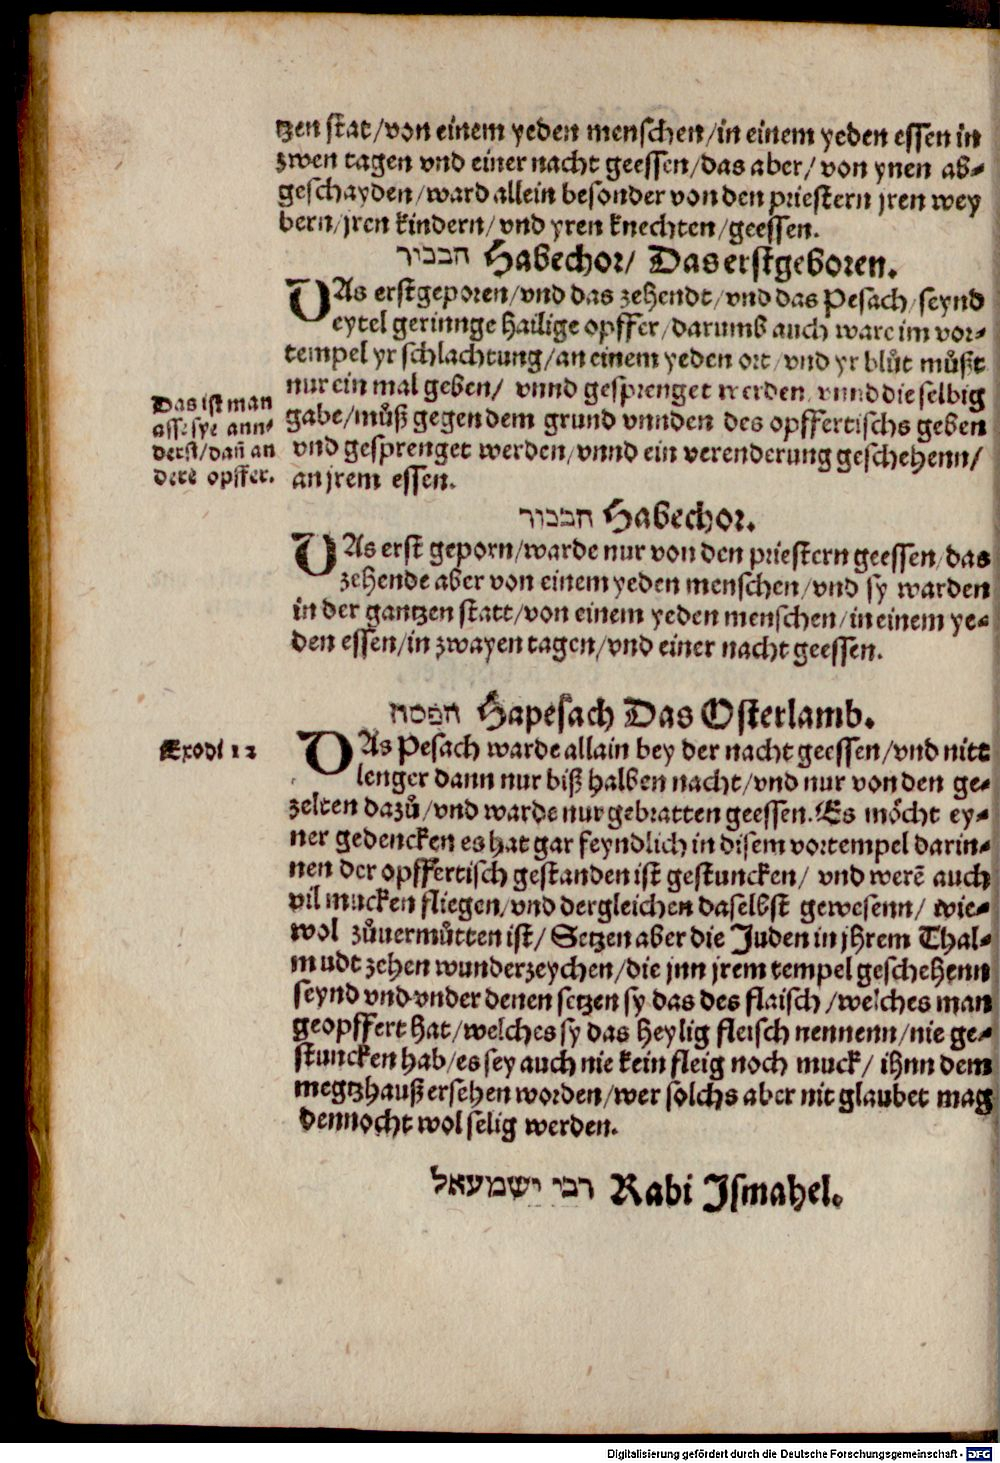 tzen stat/von einem yeden menschen/in einem yeden essen in
zwen tagen vnd einer nacht geessen/das aber/ von ynen ab-
geschayden/ward allein besonder von den priestern jren wey
bern/jren kindern/ vnd yren knechten/geessen.
הבכור Habechor/ Das erstgeboren.
DAs erstgeporen/vnd das zehendt/vnd das Pesach/seynd
eytel gerinnge hailige opffer/darumb auch ware im vor-
tempel yr schlachtung/an einem yeden ort/vnd yr blůt můßt
nur ein mal geben/ vnnd gesprenget werden/vnnd die selbig
Das ist man
asse sye ann-
derst/dañ an
dere opffer.
gabe/můß gegen dem grund vnnden des opffertischs geben
vnd gesprenget werden/vnnd ein verenderung geschehenn/
an jrem essen.
הבכור Habechor.
DAs erst geporn/warde nur von den priestern geessen/das
zehende aber von einem yeden menschen/vnd sy warden
in der gantzen statt/von einem yeden menschen/in einem ye-
den essen/in zwayen tagen/vnd einer nacht geessen.
הפסח Hapesach Das Osterlamb.
Exodi 12
DAs Pesach warde allain bey der nacht geessen/vnd nitt
lenger dann nur biß halben nacht/vnd nur von den ge-
zelten dazů/vnd warde nur gebratten geessen. Es möcht ey-
ner gedencken es hat gar feyndlich in disem vortempel darin-
nen der opffertisch gestanden ist gestuncken/ vnd werē auch
vil mucken fliegen/vnd dergleichen daselbst gewesenn/ wie-
wol zůuermůtten ist/ Setzen aber die Juden in jhrem Thal-
mudt zehen wunderzeychen/die jnn jrem tempel geschehenn
seynd vnd vnder denen setzen sy das des flaisch/welches man
geopffert hat/welches sy das heylig fleisch nennenn/nie ge-
stuncken hab/es sey auch nie kein fleig noch muck/ ihnn dem
megtzhauß ersehen worden/wer solchs aber nit glaubet mag
dennocht wol selig werden.
רבי ישמעאל Rabi Ismahel.
Digitalisierung gefördert durch die Deutsche Forschungsgemeinschaft - DFG